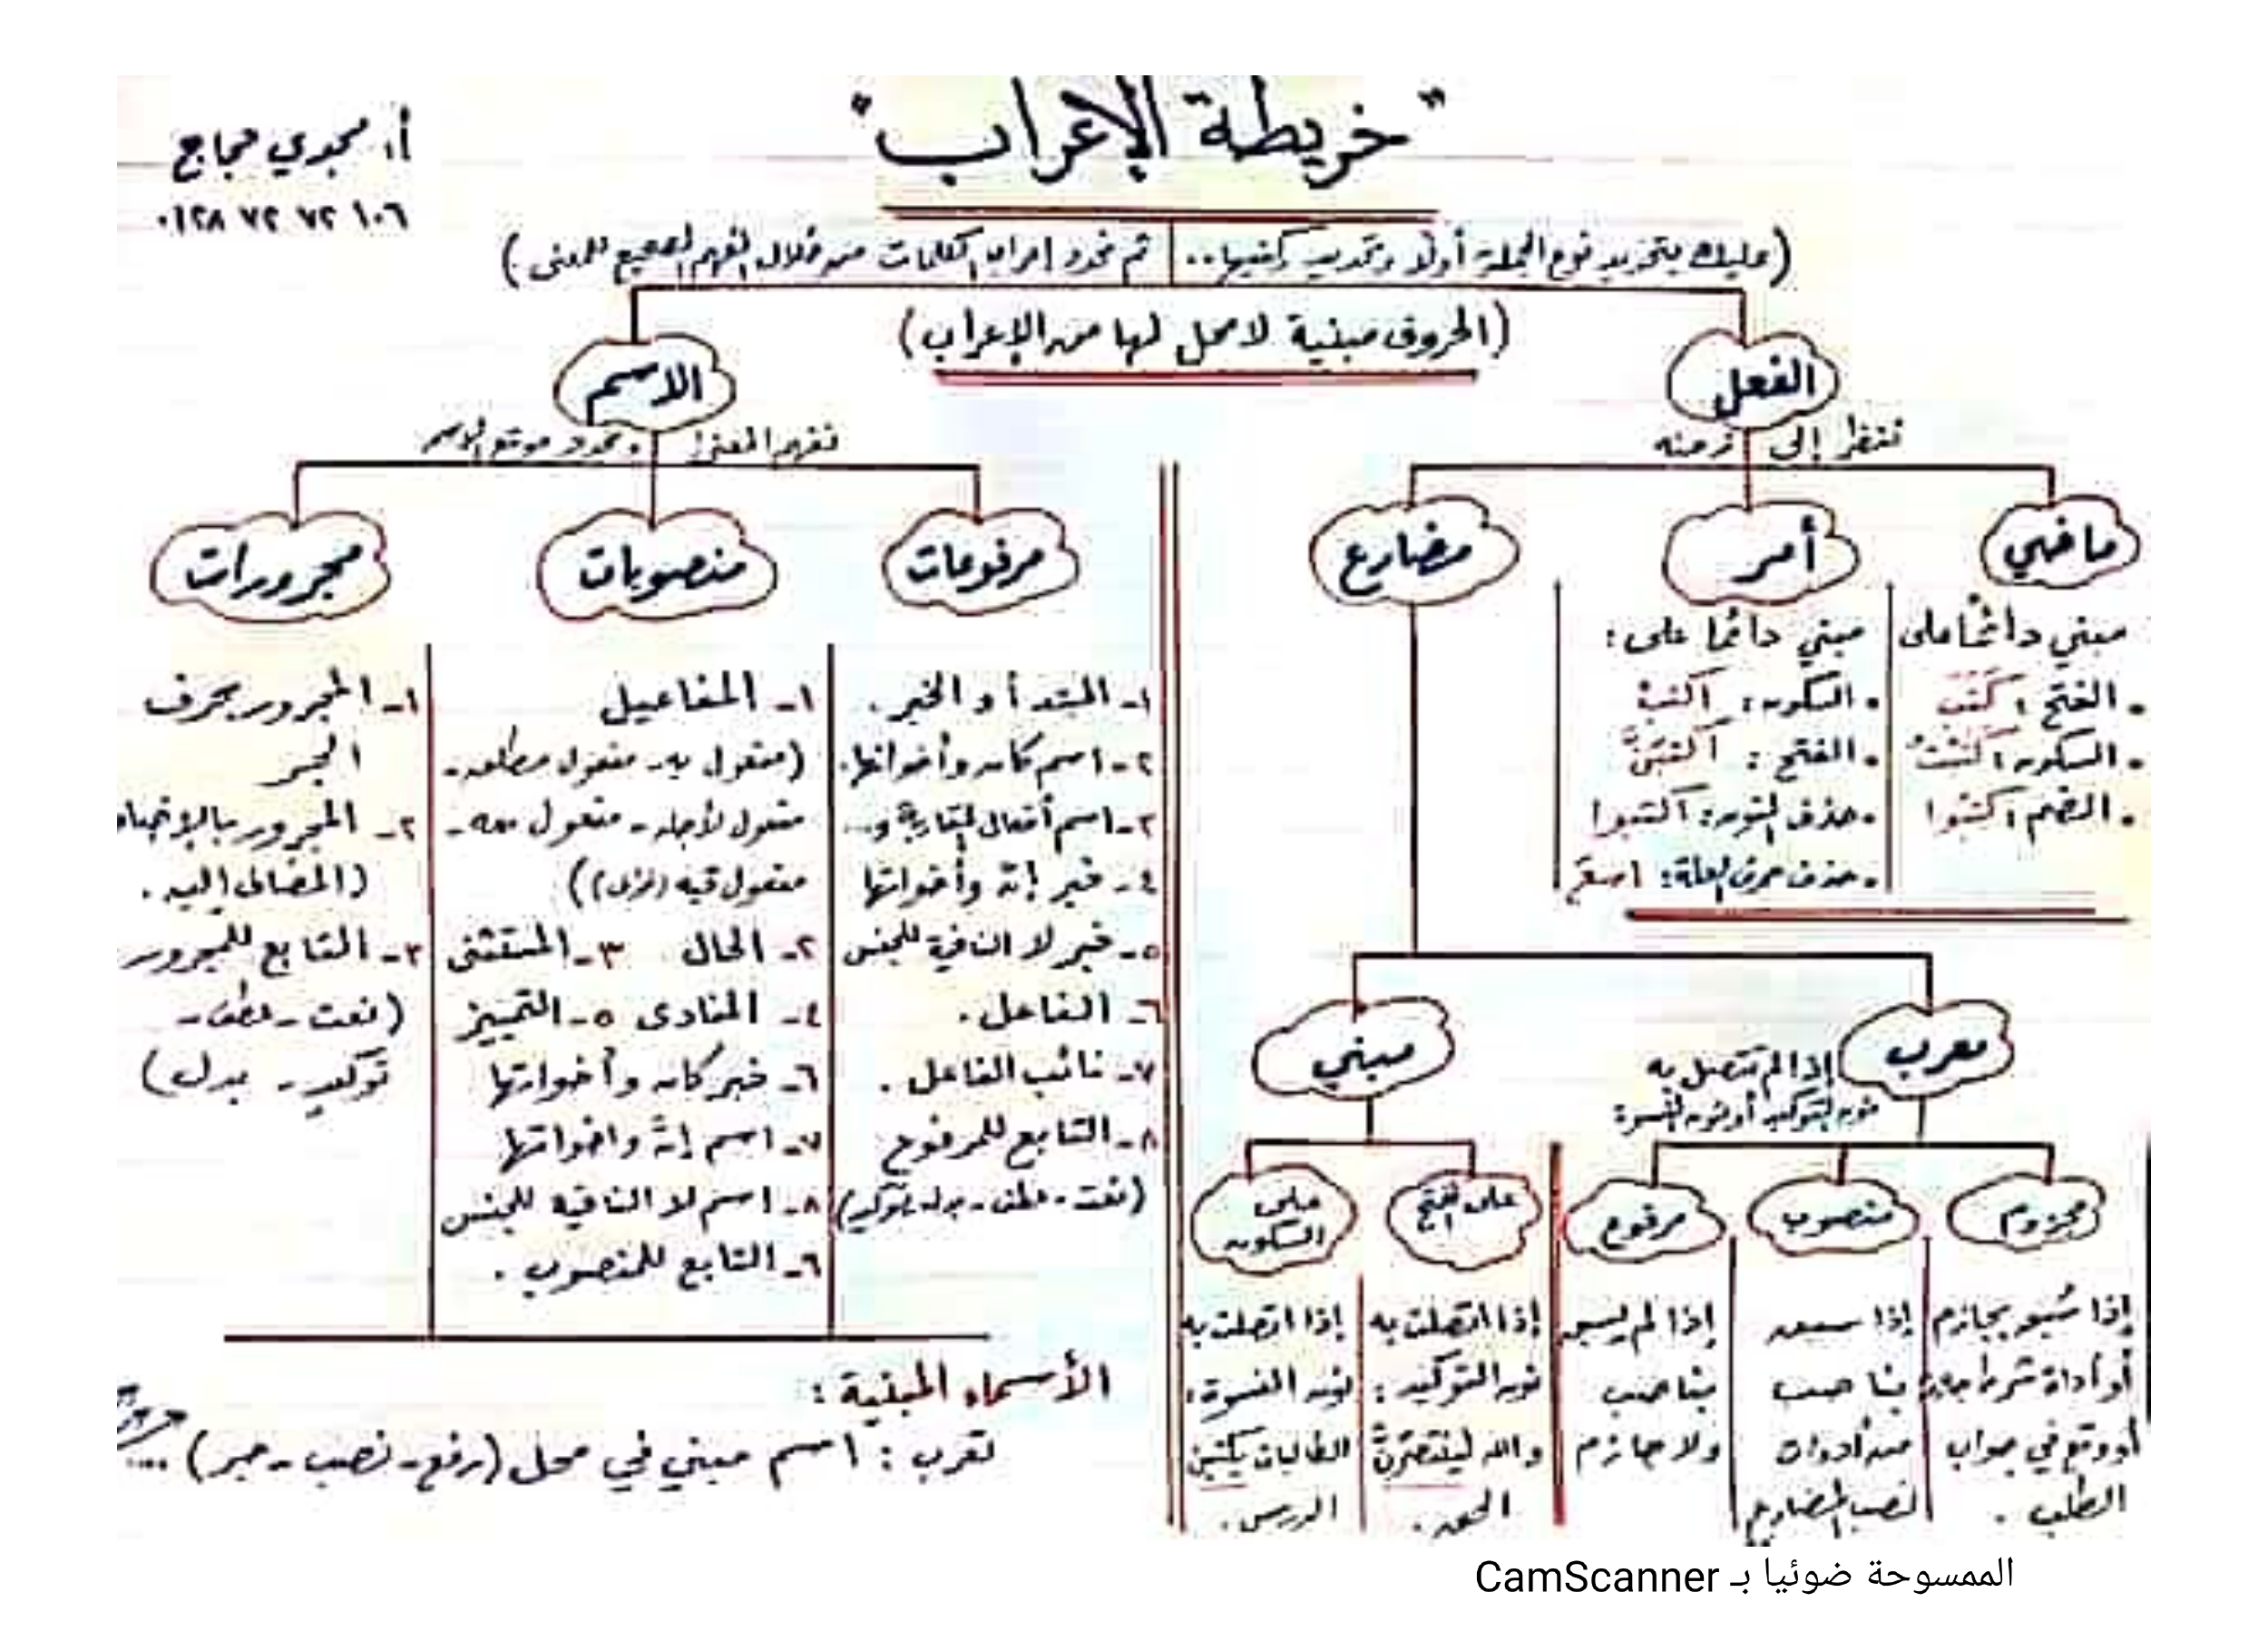 "خريطة الإعراب"
أ. مجدي حجاج
٠١٢٨ ٧٢ ٧٢ ١٠٦
(عليك بتحديد نوع الجملة أولًا وتحديد ركنيها.. ثم نحدد إعراب الكلمات من خلال الفهم الصحيح للمعنى.)
(الحروف مبنية لا محل لها من الإعراب)
الفعل
ننظر إلى زمنه
ماضي
مبني دائمًا على
. الفتح: كَتَبَ
. السكون:
. الضم:
أمر
مبني دائمًا على:
. السكون: اكتبْ
. الفتح: اكتبَنَّ
. حذف النون: اكتبوا
. حذف حرف العلة:
مضارع
معرب
إذا لم تتصل به
نون التوكيد أو نون النسوة:
مجزوم
إذا سُبق بجازم
أو أداة شرط
أو وقع في جواب
الطلب .
منصوب
إذا سبق
بناصب
من أدوات
نصب المضارع
مرفوع
إذا لم يسبق
بناصب
ولا جازم
مبني
على الفتح
إذا اتصلت به
نون التوكيد:
والله لينتصرنَّ
الحق .
على
السكون
إذا اتصلت به
نون النسوة:
الطالبات يكتبْن
الدرس .
الاسم
نفهم المعنى ونحدد موقع الاسم
مرفوعات
١- المبتدأ و الخبر .
٢- اسم كان وأخواتها.
٣- اسم أفعال المقاربة و...
٤- خبر إنّ وأخواتها
٥- خبر لا النافية للجنس
٦- الفاعل .
٧- نائب الفاعل .
٨- التابع للمرفوع
(نعت - عطف - بدل - توكيد)
منصوبات
١- المفاعيل
(مفعول به - مفعول مطلق -
مفعول لأجله - مفعول معه -
مفعول فيه
٢- الحال ٣- المستثنى
٤- المنادى ٥- التمييز
٦- خبر كان وأخواتها
٧- اسم إنَّ واخواتها
٨- اسم لا النافيه للجنس
٦- التابع للمنصوب .
مجرورات
١- المجرور بحرف
الجر
٢- المجرور
(المضاف إليه .
٣- التابع للمجرور
(نعت - عطف -
توكيد - بدل)
الأسماء المبنية :
تعرب : اسم مبني في محل (رفع - نصب - جر) ...
الممسوحة ضوئيا بـ CamScanner